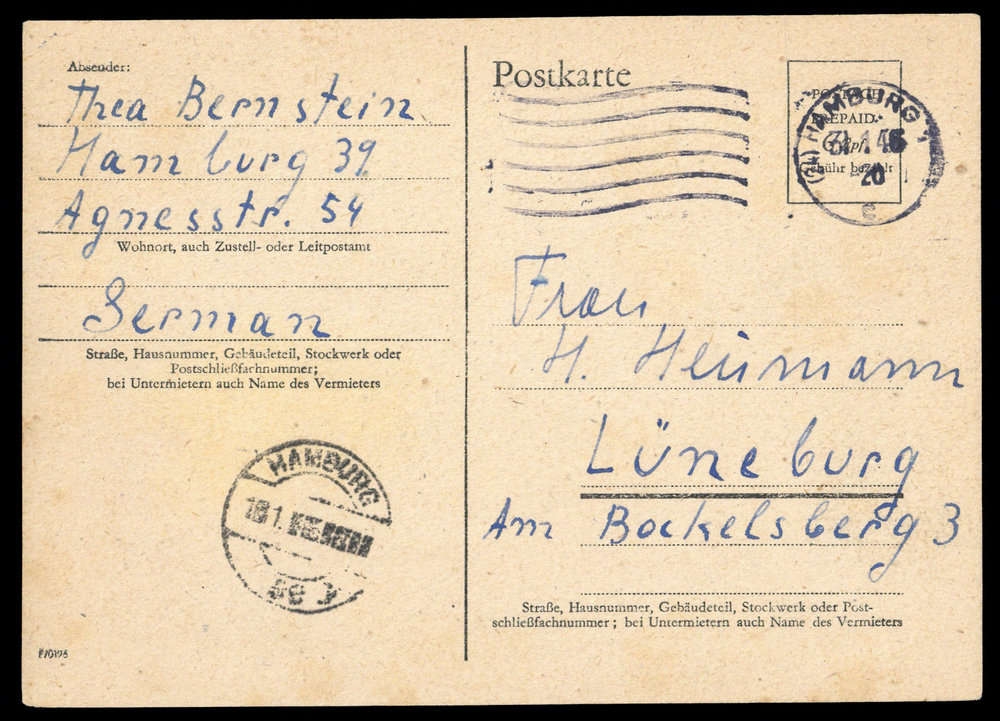 Absender:
Thea Bernstein
Hamburg 39
Agnesstr. 54
Wohnort, auch Zustell- oder Leitpostamt
German
Straße, Hausnummer, Gebäudeteil, Stockwerk oder
Postschließfachnummer;
bei Untermietern auch Name des Vermieters
HAMBURG
Postkarte
POSTAGE
PREPAID
6 Rpf.
Gebühr bezahlt
(24) HAMBURG 1
20
e
Frau
H. Heinmann
Lüneburg
Am Bockelsberg 3
Straße, Hausnummer, Gebäudeteil, Stockwerk oder Post-
schließfachnummer; bei Untermietern auch Name des Vermieters